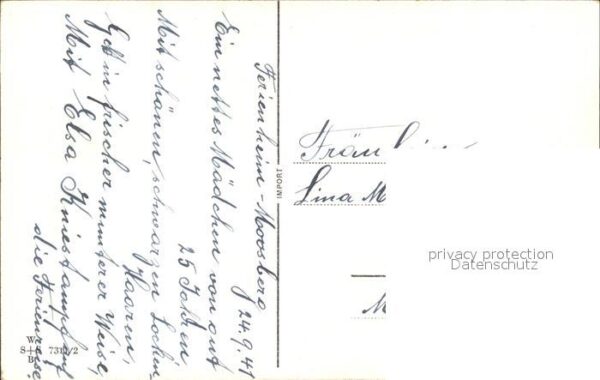 Ferienheim-Moosberg
24.9.41
Ein nettes Mädchen von auf
25 Jahren
Mit schönen, schwarzen Locken
Haaren,
Geht in frischer munterer Weise,
Mit Elsa Kniestampf auf
die Ferienreise.
IMPORT
Fräu
Lina M
M
W
S+B 7312/2
B
privacy protection
Datenschutz